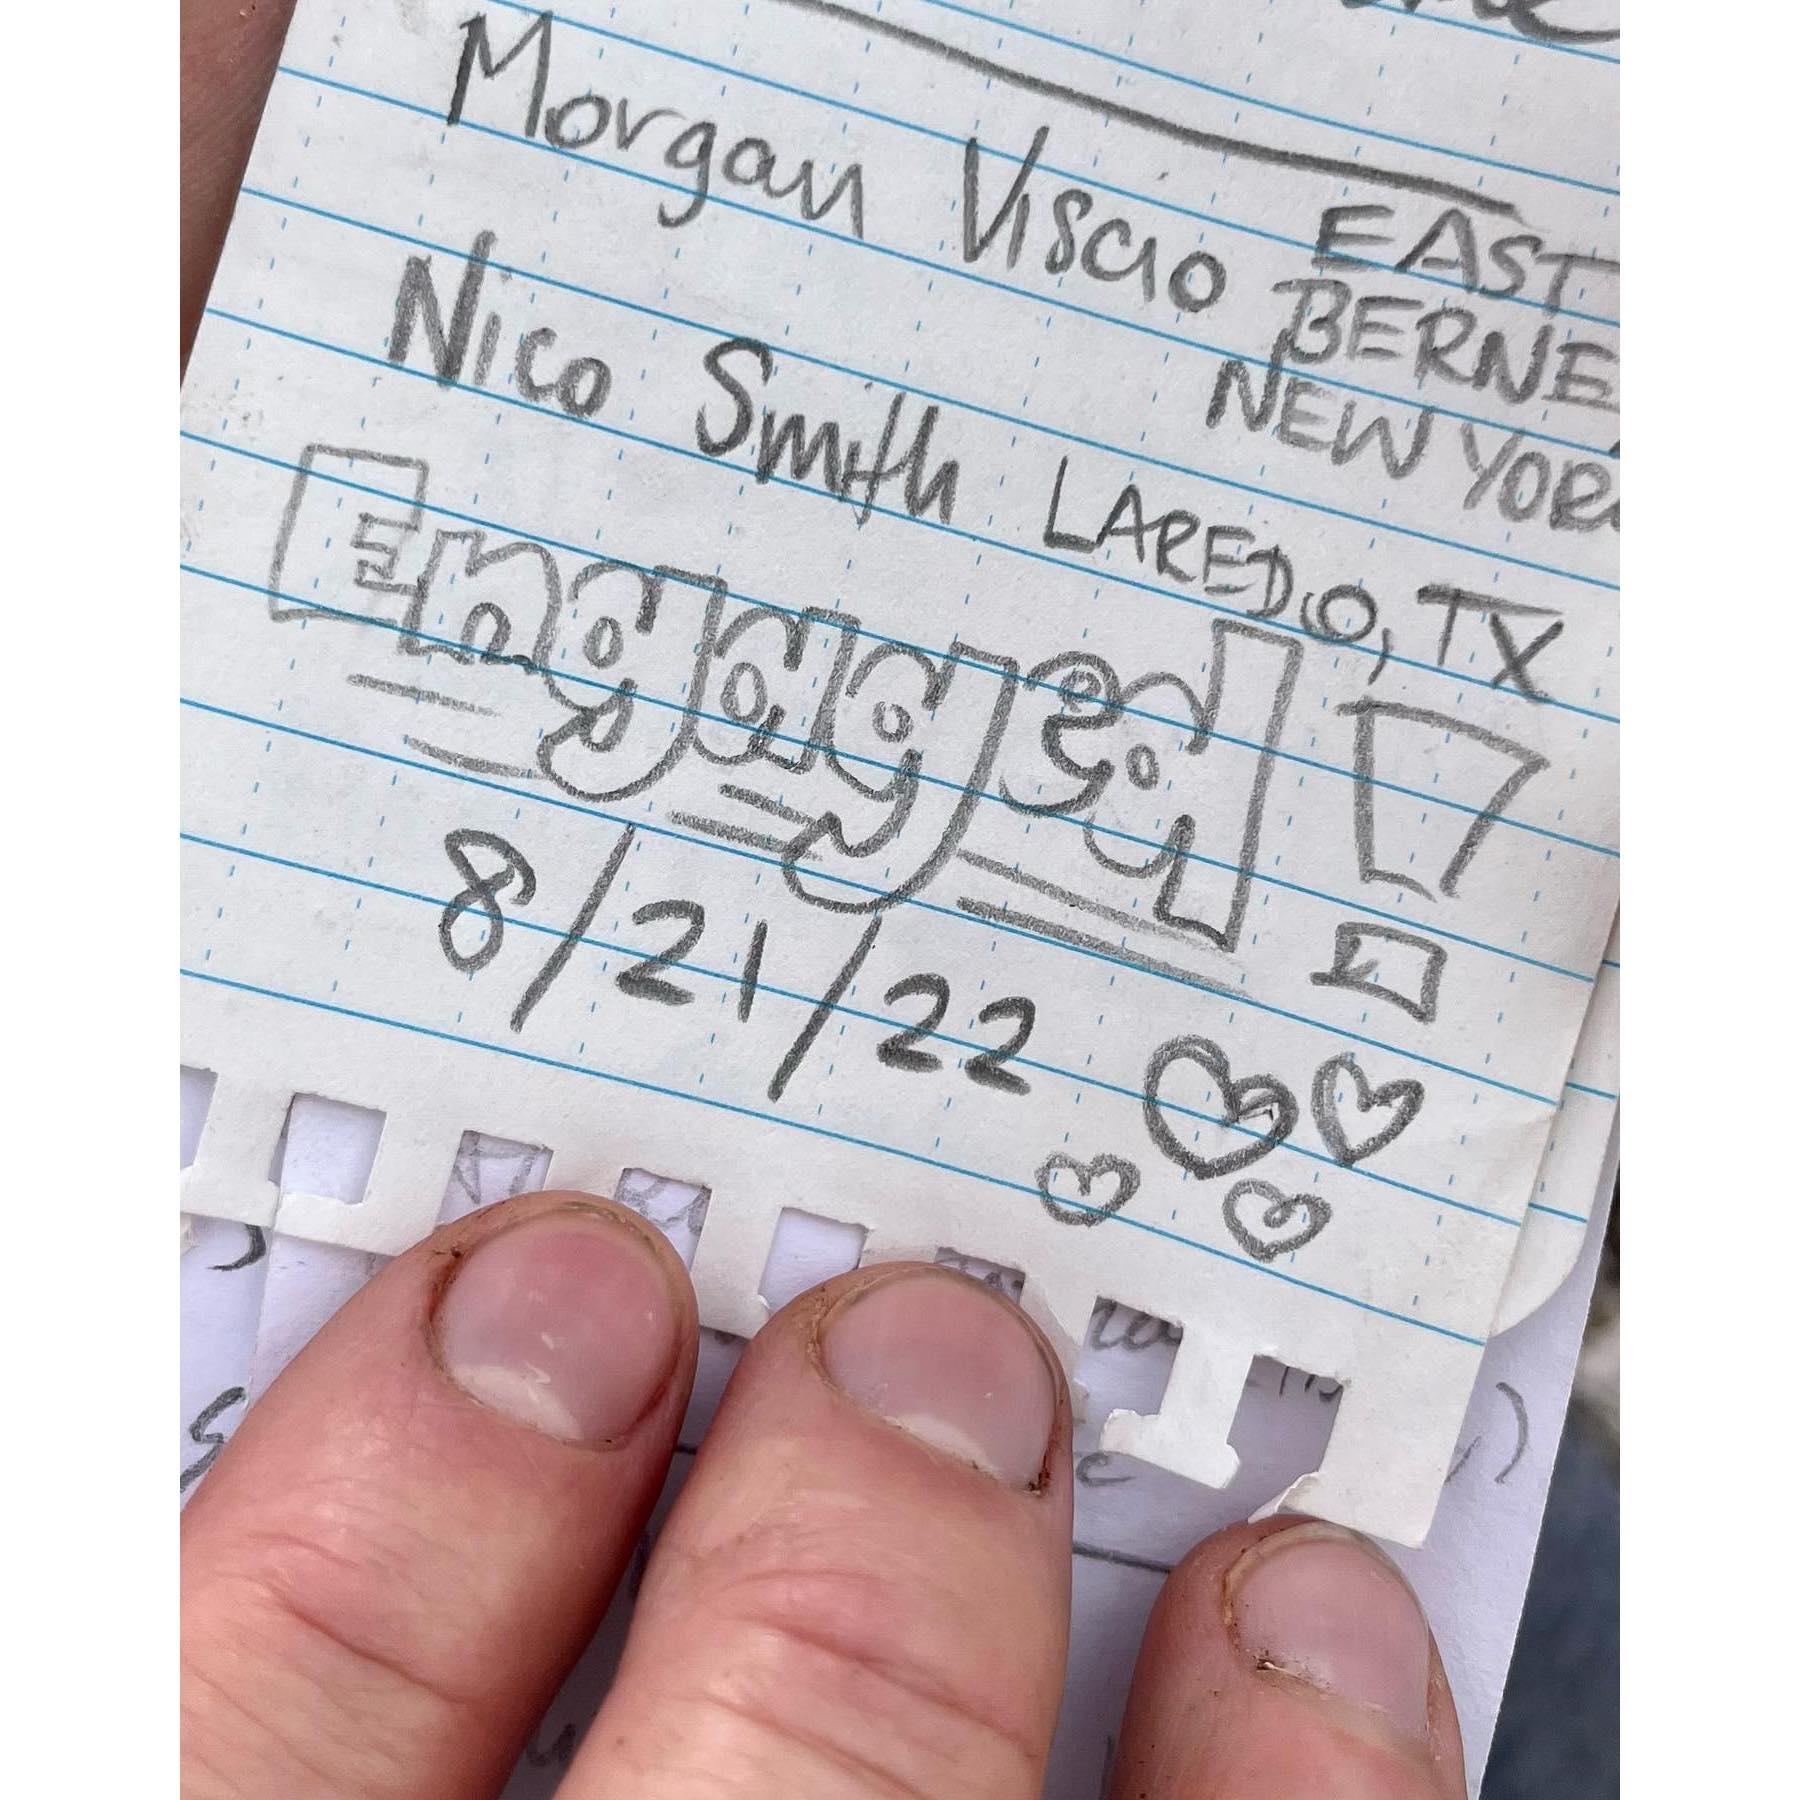 Morgan Viscio EAST
BERNE,
NEW YORK
Nico Smith LAREDO, TX
Engaged!
8/21/22